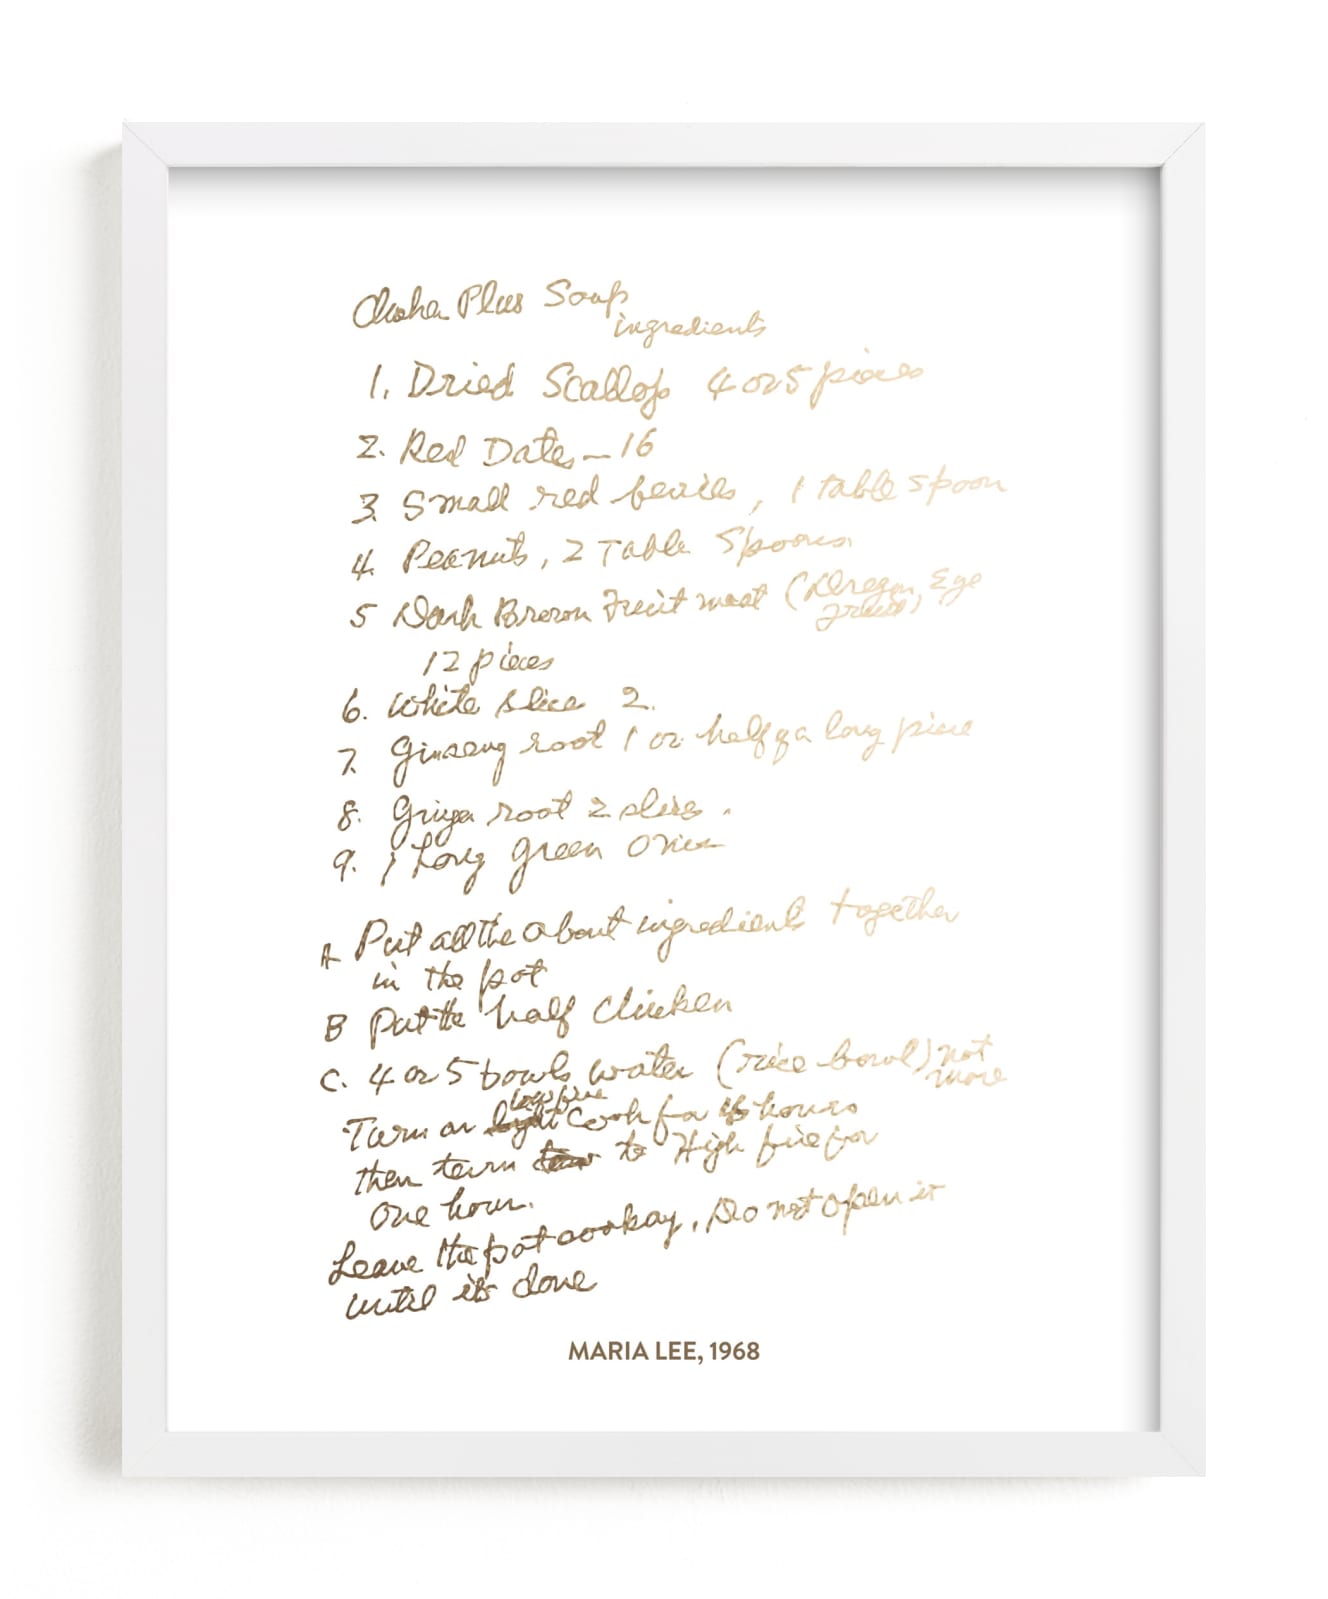 Plus Soup
ingredients
1. Dried Scallop 4 or 5 pieces
2. Red Dates – 16
3. Small red berries, 1 table spoon
4. Peanuts, 2 Table Spoons
5 Dark Brown Fruit meat (Dragon Eye
fruit)
12 pieces
6. White slice 2.
7. Ginseng root 1 or half of a long piece
8. Ginger root 2 slices.
9. 1 Long green onion
A Put all the about ingredients together
in the pot
B Put the half Chicken
C. 4 or 5 bowls water (rice bowl) not
more
low fire
Turn on Cook for hours
then turn to High fire for
One hour.
Leave the pot, Do not open it
until its done
MARIA LEE, 1968